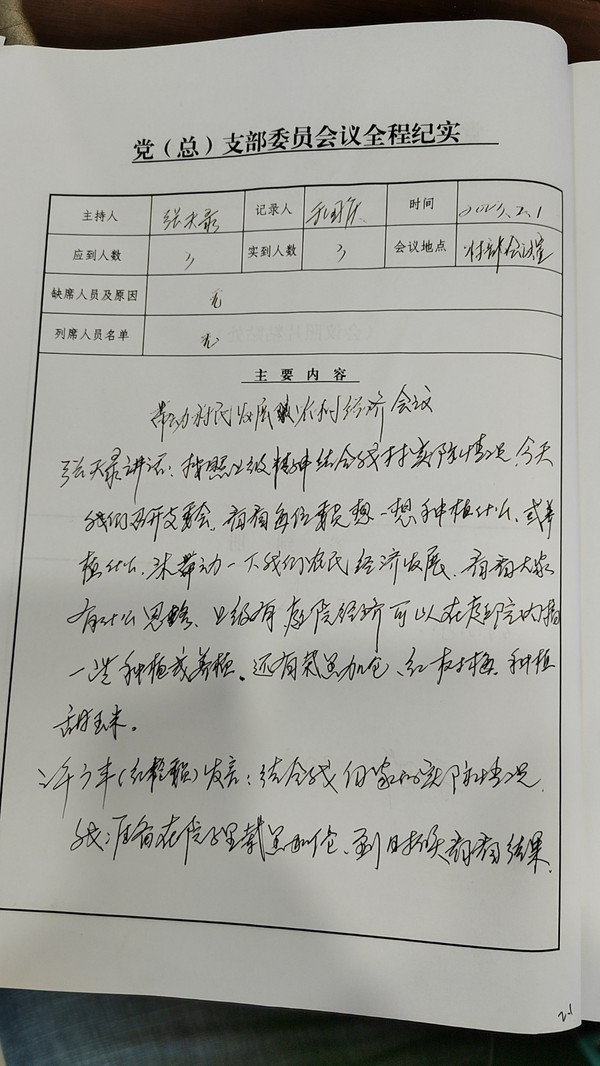 党（总）支部委员会议全程纪实
主持人 张天录 记录人 时间 2023.2.1
应到人数 3 实到人数 3 会议地点 村部会议室
缺席人员及原因 无
列席人员名单 无
主要内容
带动村民发展农村经济会议
张天录讲话：按照上级精神结合我村实际情况，今天
我们召开支委会，看看每位委员想一想种植什么，或养
植什么，来带动一下我们农民经济发展，看看大家
有什么思路，上级有庭院经济可以在庭院内搞
一些种植或养植。还有栽黑加仑、红树梅、种植
甜玉米。
发言：结合我们家的实际情况，
我准备在院子里栽黑加仑，到时候看看结果。
21